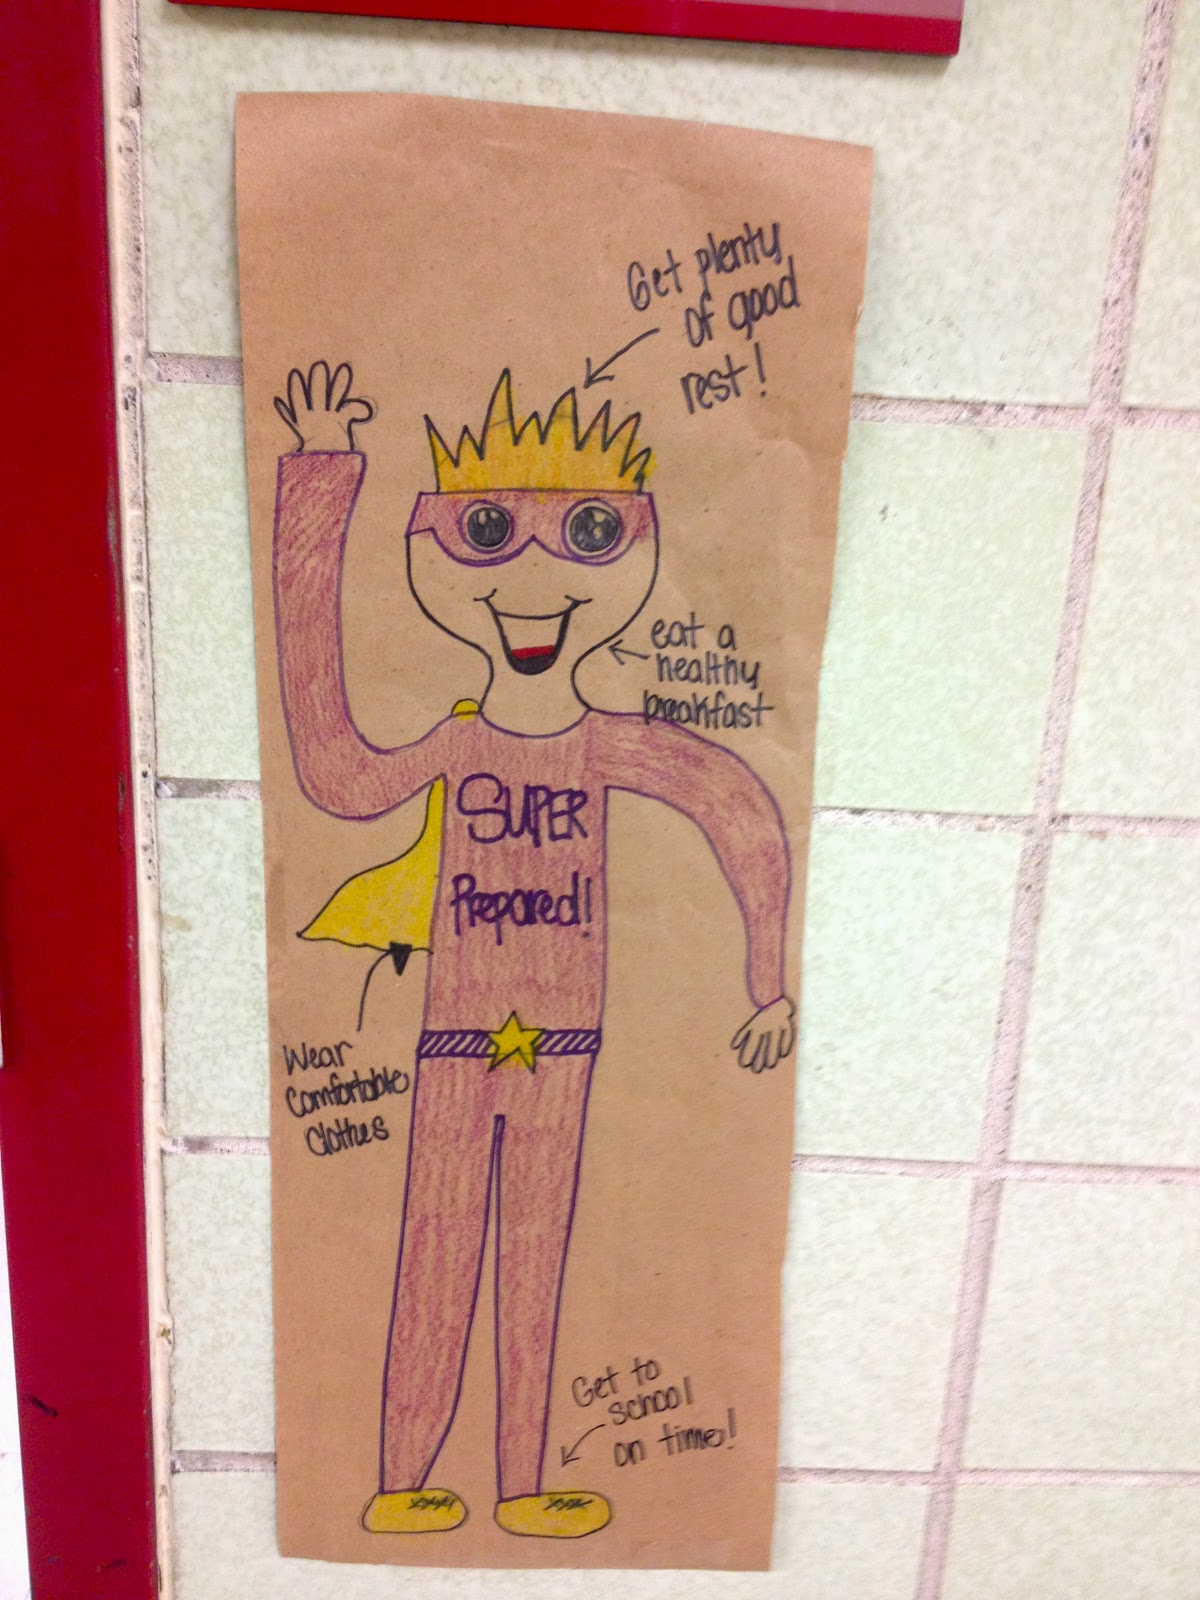 Get plenty
of good
rest!
eat a
healthy
breakfast
SUPER
Prepared!
Wear
Comfortable
Clothes
Get to
school
on time!